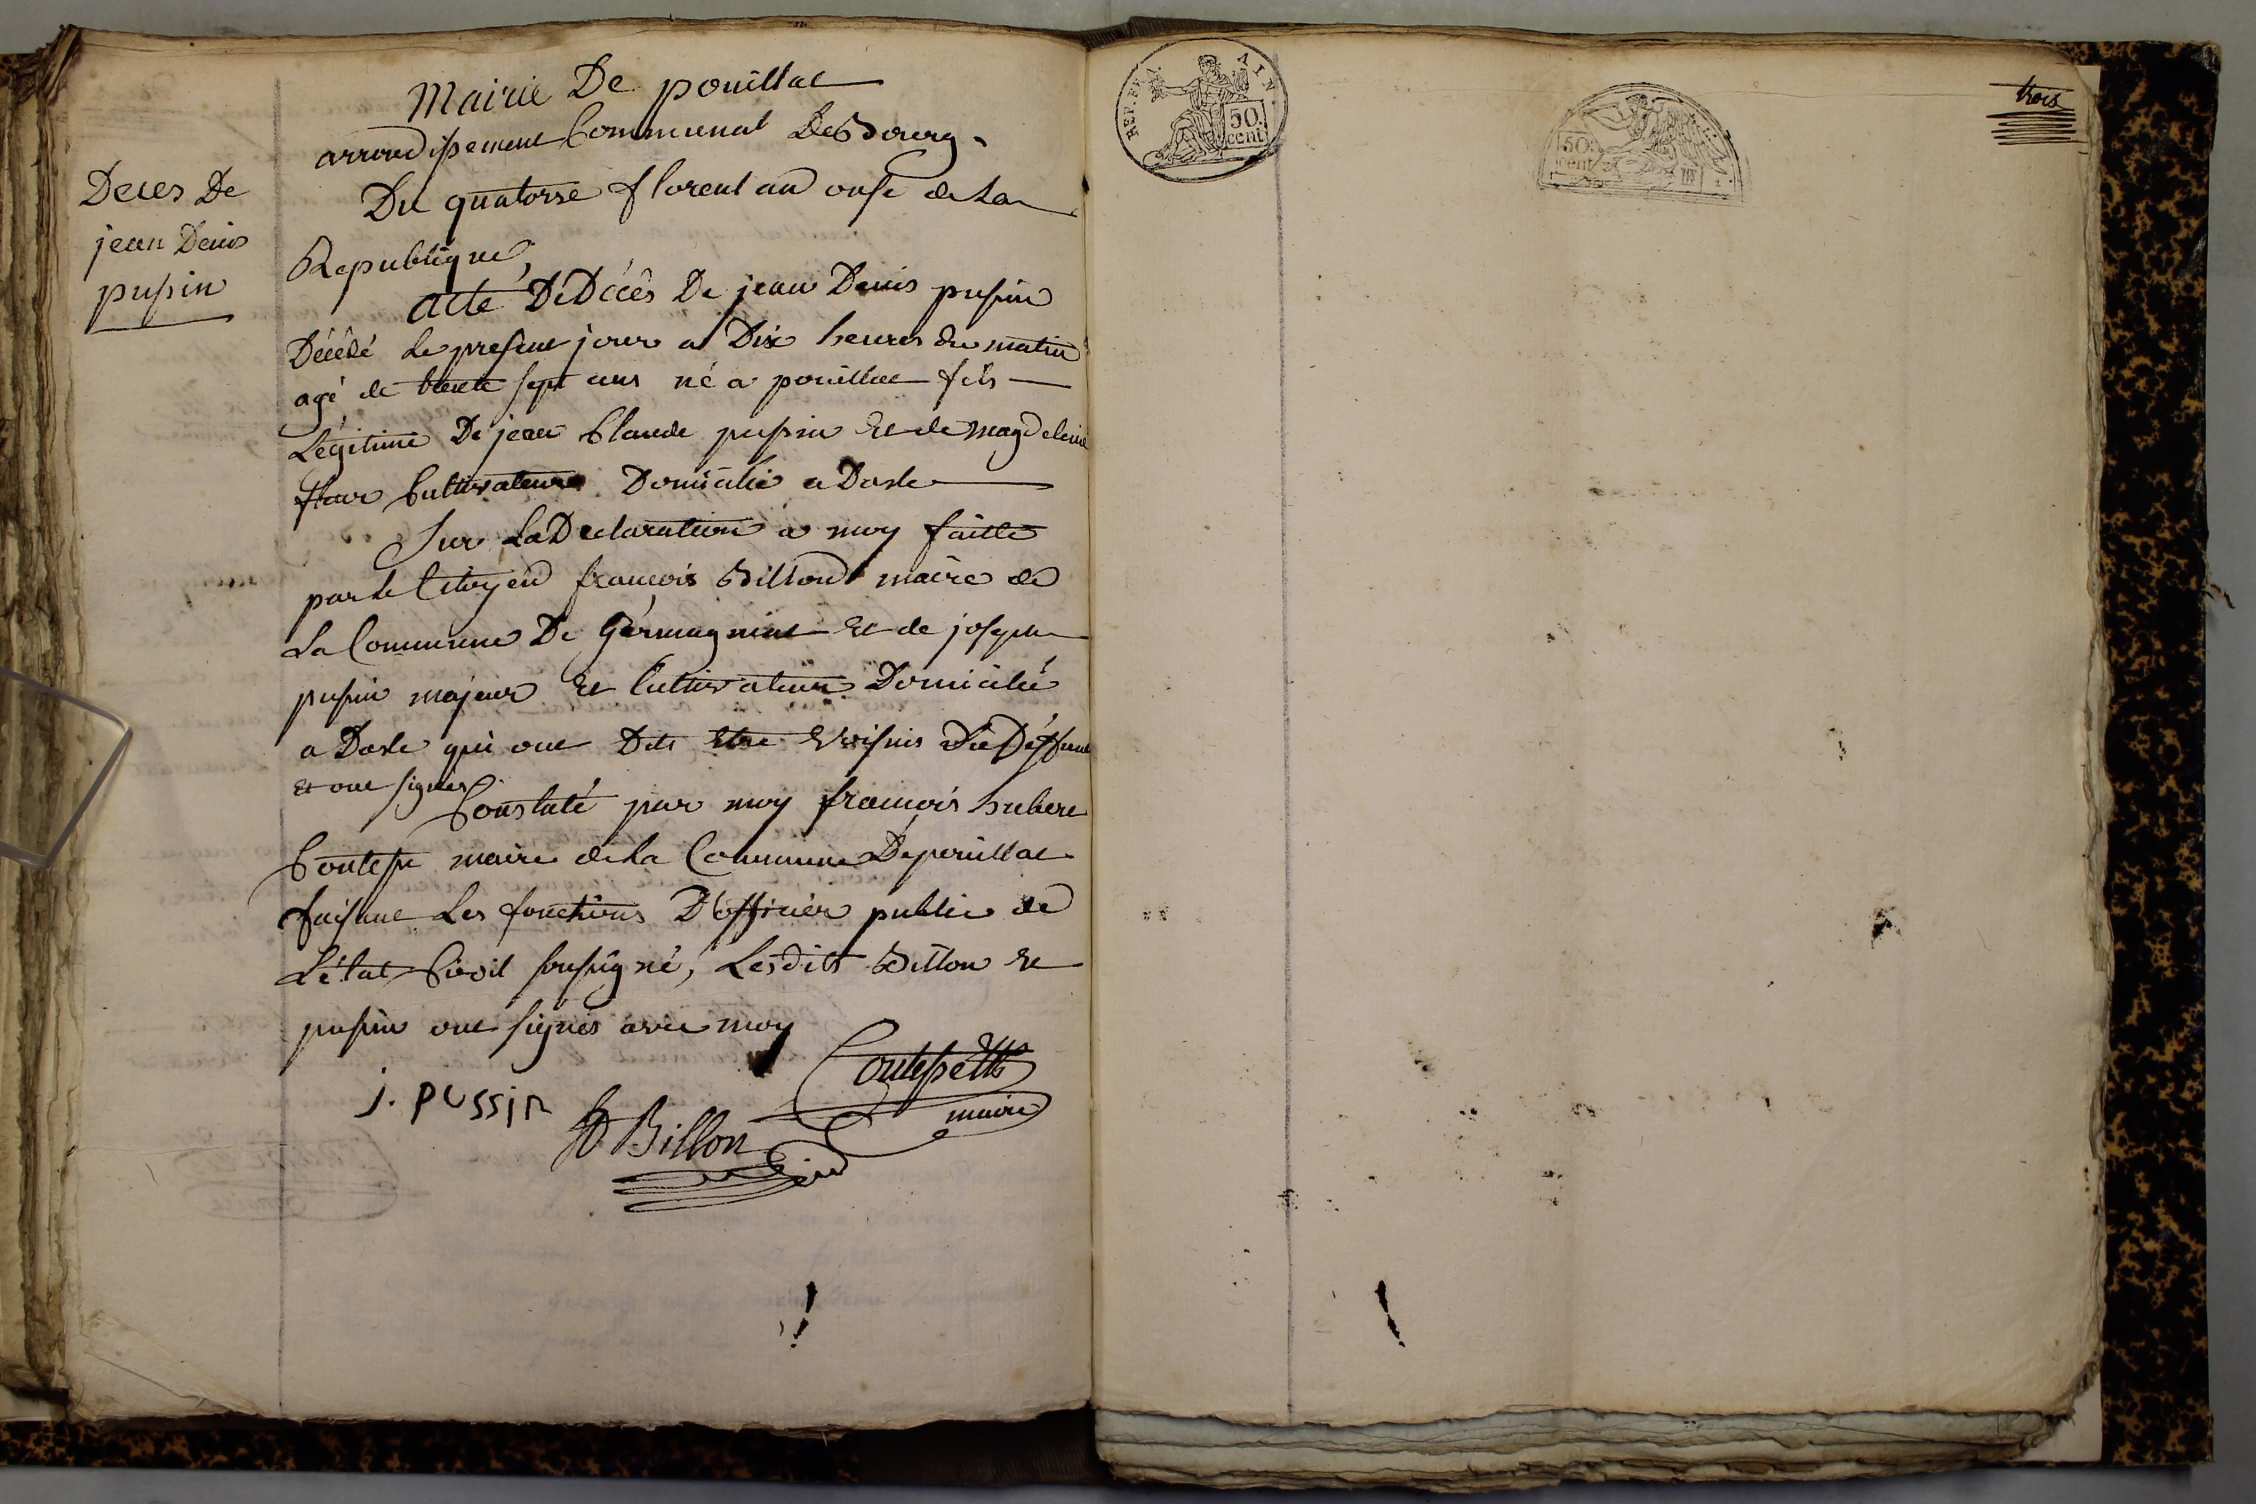 Deces De
jean Denis
pusin
Mairie De pouillat
arrondissement Communal De Bourg
Du quatorse floreal an onse de La
Republique
acte De Décès De jean Denis pusin
Décédé Le present jour a Dix heures du matin
agé de trente sept ans né a pouillat fils
Légitime De jean Claude pusin Et de Magdeleine
Cultivateur Domicilié a Dasle
Sur La Declaration a moy faitte
par le Citoyen francois Billond maire de
La Commune De Germagniat Et de joseph
pusin majeur Et Cultivateur Domicilié
a Dasle qui ont Dits Etre Voisins Du Déffunt
et ont signés
Constaté par moy francois hubert
Contesse maire de La Commune De pouillat
faisant Les fonctions D'officier public de
L'état Civil soussigné, Lesdits Billon Et
pusin ont signés avec moy
J. PUSSIN
Billon
maire
REP. FRA. AIN.
50 cent
50 cent
trois